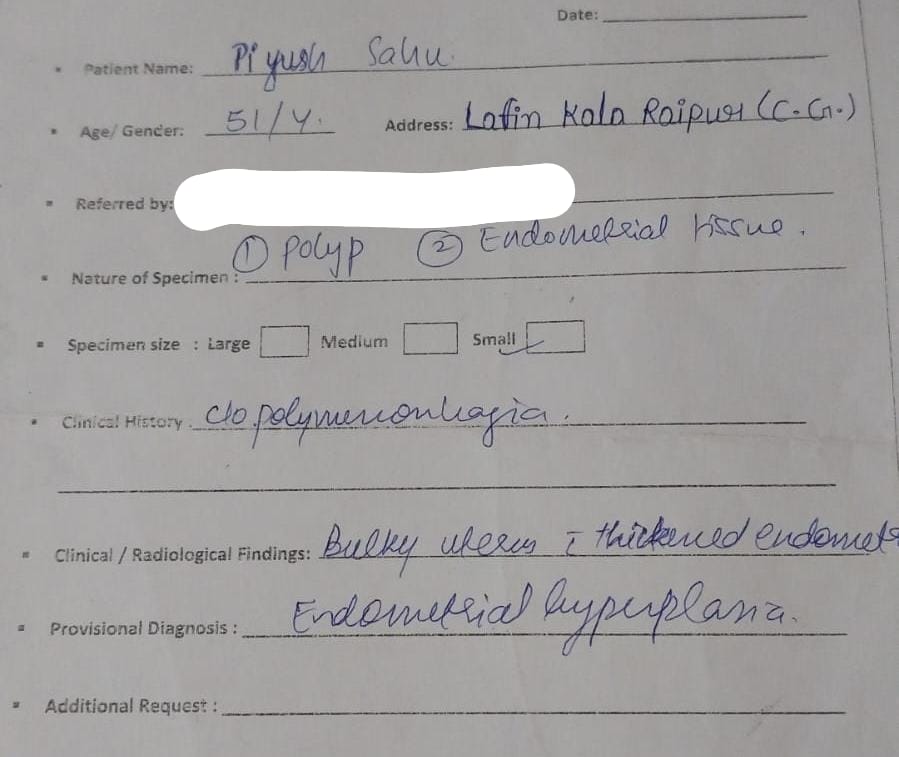 Date:
Patient Name: Piyush Sahu.
Age/ Gender: 51/Y. Address: Lafin Kala Raipur (C.G.)
Referred by:
① Polyp ② Endometrial tissue.
Nature of Specimen :
Specimen size : Large Medium Small
Clinical History . c/o polymenorrhagia.
Clinical / Radiological Findings: Bulky uterus c̄ thickened endomet
Provisional Diagnosis : Endometrial hyperplasia.
Additional Request :